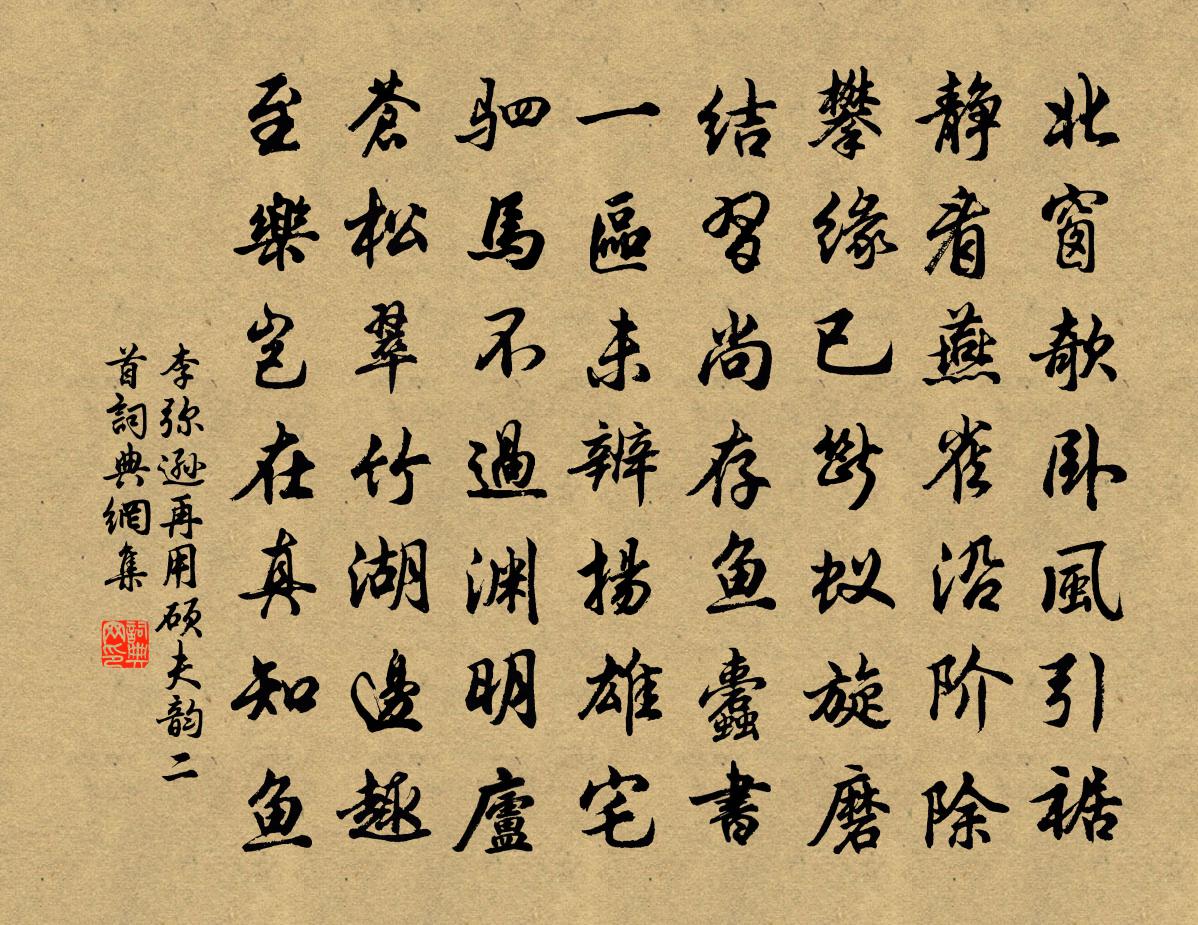 北窗欹卧風引裾
靜看燕雀沿阶除
攀緣已斷蚁旋磨
結習尚存魚蠹書
一區未辨揚雄宅
駟馬不過渊明廬
蒼松翠竹湖邊趣
至樂岂在真知魚
李弥遜再用硕夫韵二
首詞典網集
詞典网印